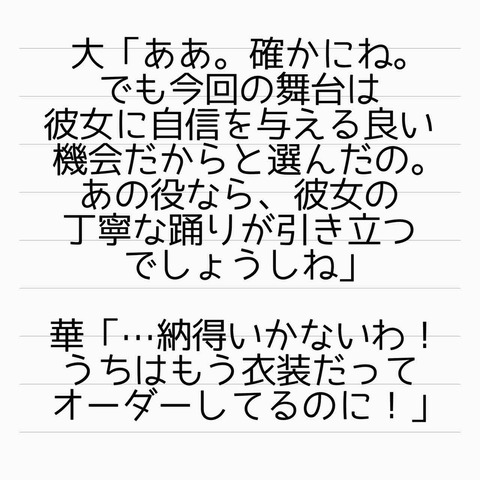 大「ああ。確かにね。
でも今回の舞台は
彼女に自信を与える良い
機会だからと選んだの。
あの役なら、彼女の
丁寧な踊りが引き立つ
でしょうしね」
華「…納得いかないわ！
うちはもう衣装だって
オーダーしてるのに！」